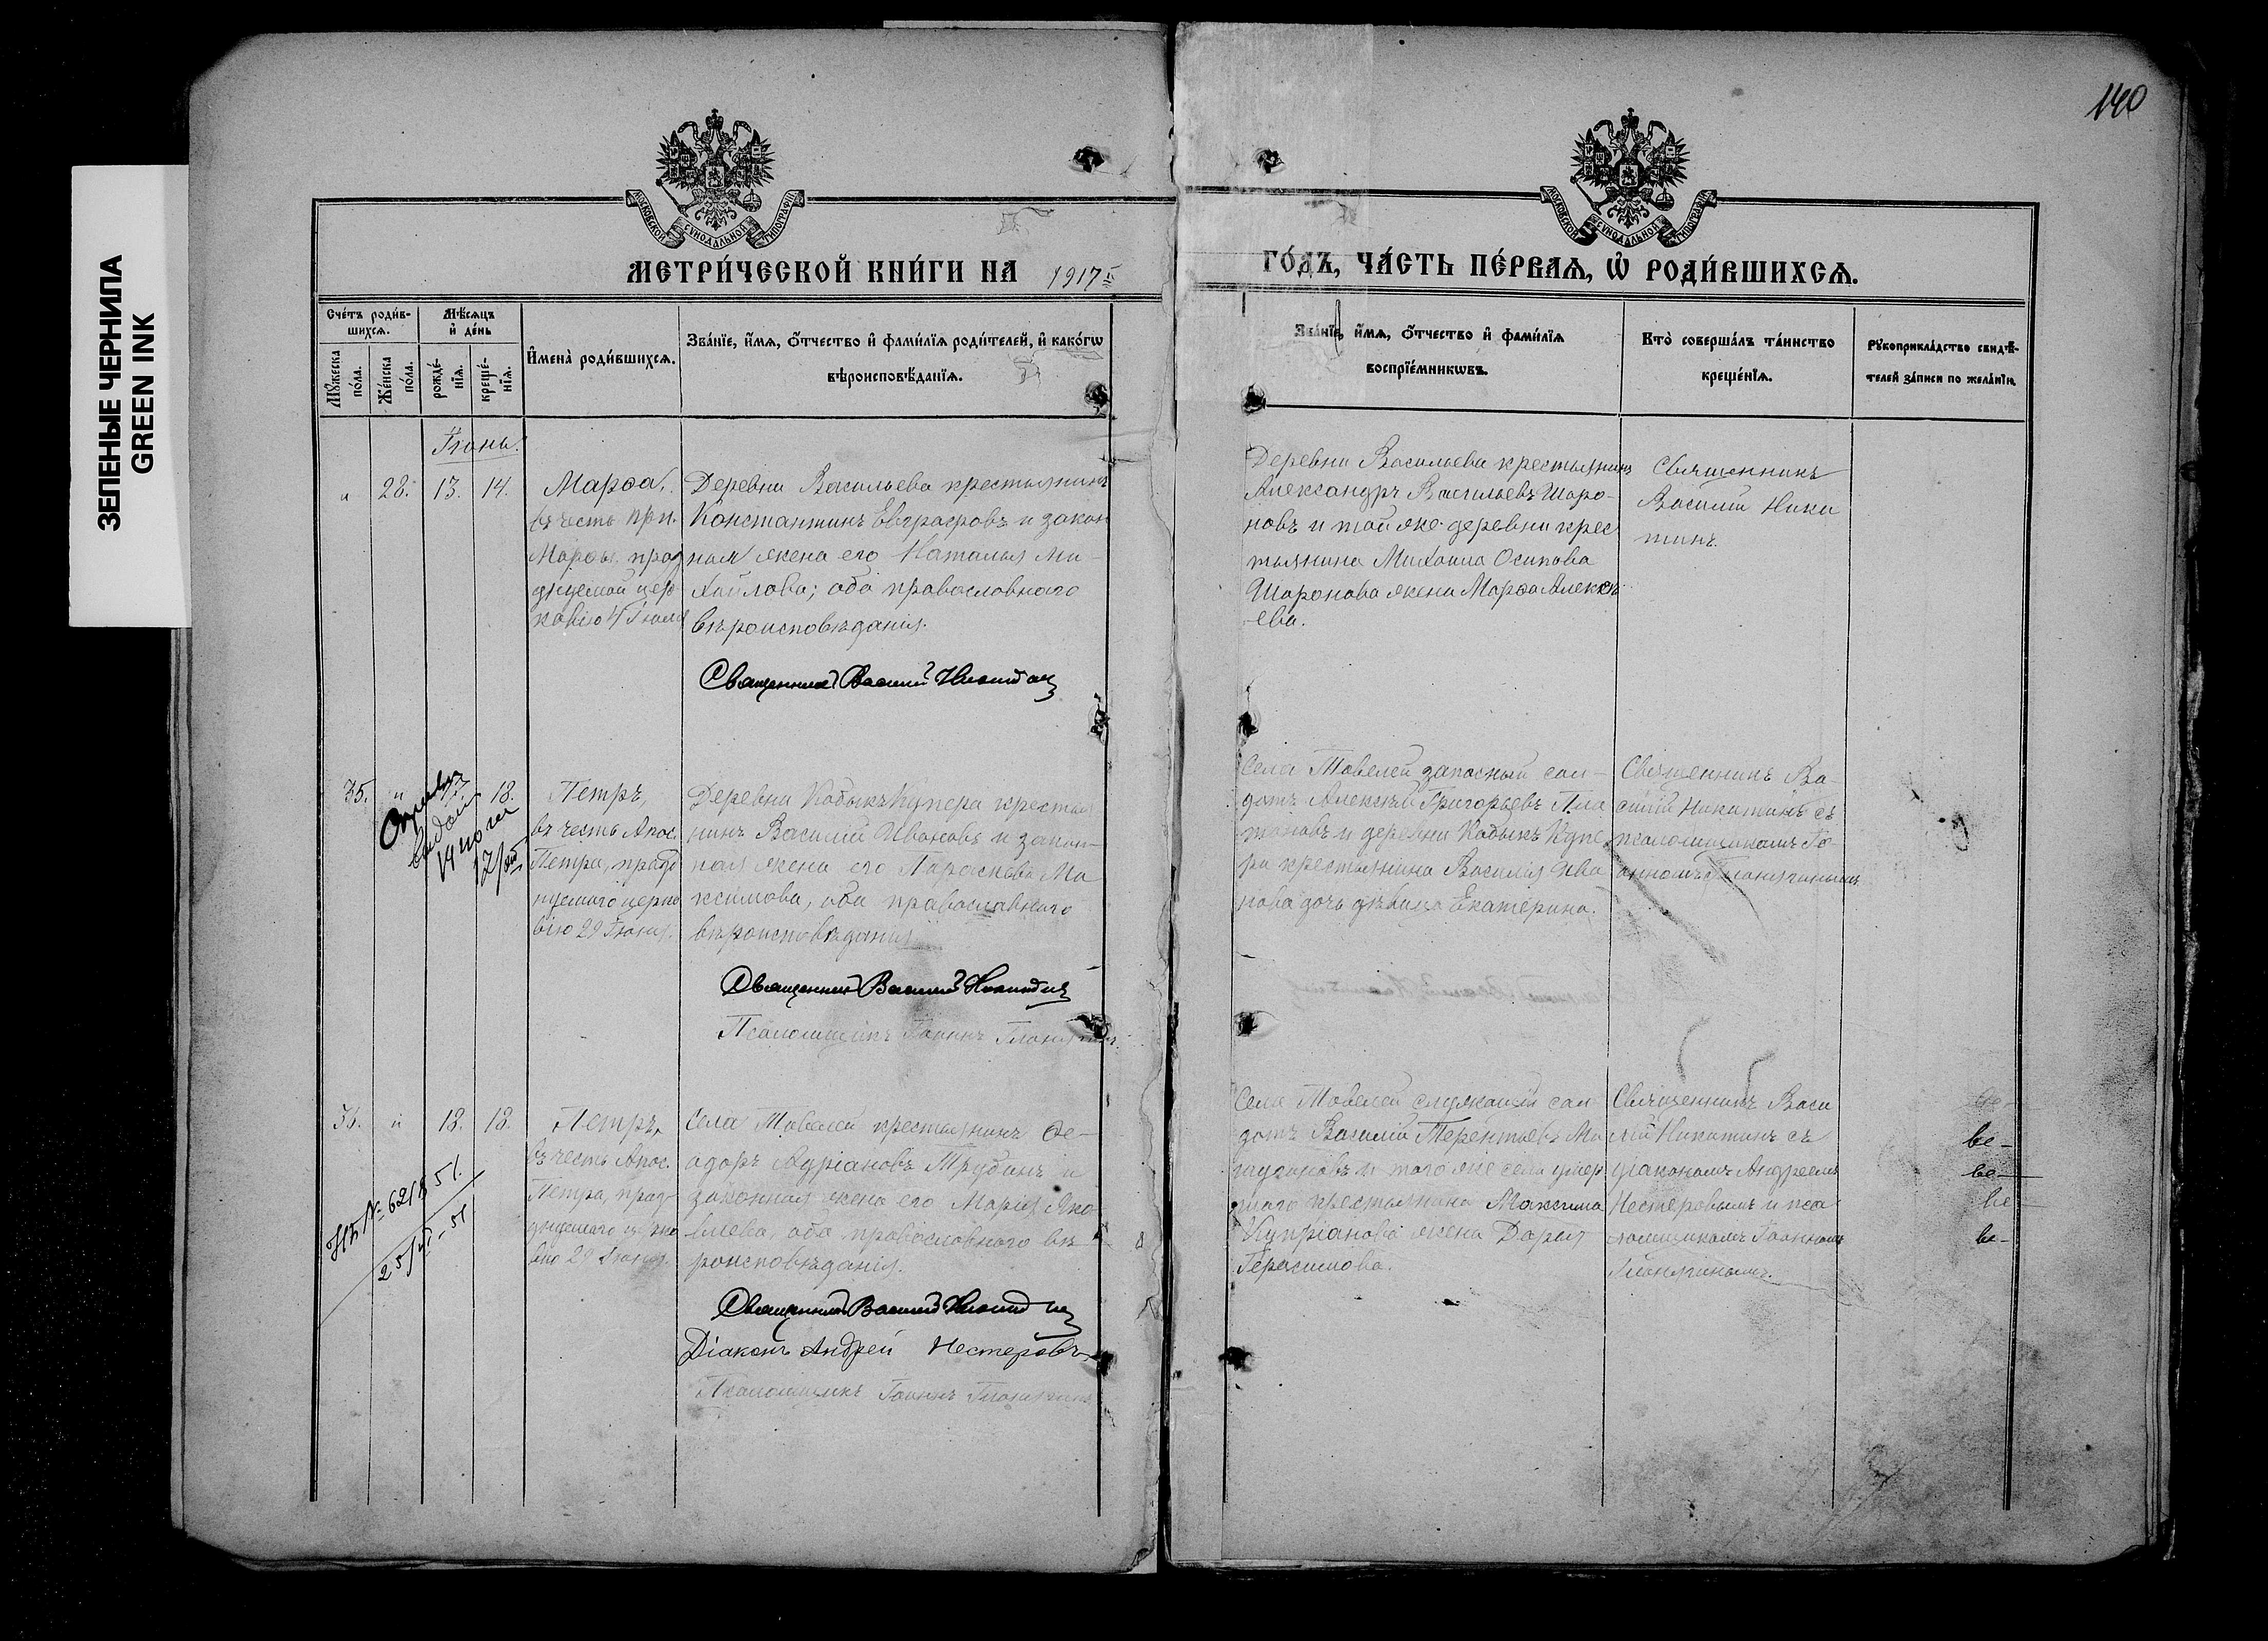 ЗЕЛЕНЫЕ ЧЕРНИЛА
GREEN INK
140
МОСКОВСКОЙ СѴНОДАЛЬНОЙ ТИПОГРАФІИ
МОСКОВСКОЙ СѴНОДАЛЬНОЙ ТИПОГРАФІИ
МЕТРИ́ЧЕСКОЙ КНИ́ГИ НА 1917 г.
ГО́ДЪ, ЧА́СТЬ ПЕ́РВАѦ, Ѡ҆ РОДИ́ВШИХСѦ.
Сче́тъ роди́в-
шихсѧ.
Мꙋ́жеска
по́ла.
Же́нска
по́ла.
Мѣ́сѧцъ
и҆ де́нь
рожде́-
нїѧ.
креще́-
нїѧ.
И҆мена̀ роди́вшихсѧ.
Зва́нїе, и҆́мѧ, ѻ҆́тчество и҆ фами́лїѧ роди́телей, и҆ како́гѡ
вѣроисповѣ́данїѧ.
Зва́нїе, и҆́мѧ, ѻ҆́тчество и҆ фами́лїѧ
воспрїе́мникѡвъ.
Кто̀ соверша́лъ та́инство
креще́нїѧ.
Рꙋкоприкла́дство свидѣ́-
телей за́писи по жела́нїю.
Іюнь.
" 28. 13. 14.
Марѳа,
въ честь прп.
Марѳы, празд
днуемой цер-
ковію 4 Іюля
Деревни Васильева крестьянинъ
Константинъ Евграфовъ и закон
ная жена его Наталья Ми-
хайлова; оба православнаго
вѣроисповѣданія.
Священникъ Василій Никитин
Деревни Васильева крестьянинъ
Александръ Васильевъ Шаро-
новъ и той же деревни крес
тьянина Михаила Осипова
Шаронова жена Марѳа Алексѣ
ева.
Священникъ
Василій Ники
тинъ.
35. " 17. 18.
Петръ,
въ честь Апос.
Петра, празд
нуемаго церко
вію 29 Іюня.
Деревни Кабыкъ Купера крестья
нинъ Василій Ивановъ и закон-
ная жена его Параскева Ма
ксимова, оба православнаго
вѣроисповѣданія
Священникъ Василій Никитин
Псаломщикъ Іоаннъ
Села Товелей запасный сол-
датъ Алексѣй Григорьевъ Пла
тоновъ и деревни Кабыкъ Купе
ра крестьянина Василія Ива
нова дочь дѣвица Екатерина.
Священникъ Ва-
силій Никитинъ съ
псаломщикомъ Іо-
анномъ
36. " 18. 18.
Петръ,
въ честь Апос.
Петра, празд-
днуемаго церко
вію 29 Іюня.
№ 6218 51.
25/VI-51.
Села Товелей крестьянинъ Ѳе-
адоръ Адріановъ Трубинъ и
законная жена его Марія Яко
влева оба православнаго вѣ
роисповѣданія.
Священникъ Василій Никитин
Діаконъ Андрей Нестеровъ
Псаломщикъ Іоаннъ
Села Товелей служащій сол
датъ Василій Терентьевъ
и того же села умер
шаго крестьянина Максима
Купріанова жена Дарья
Герасимова.
Священникъ Васи
лій Никитинъ съ
діакономъ Андреемъ
Нестеровымъ и пса
ломщикомъ Іоанномъ
ве-
ве-
ве
ве-